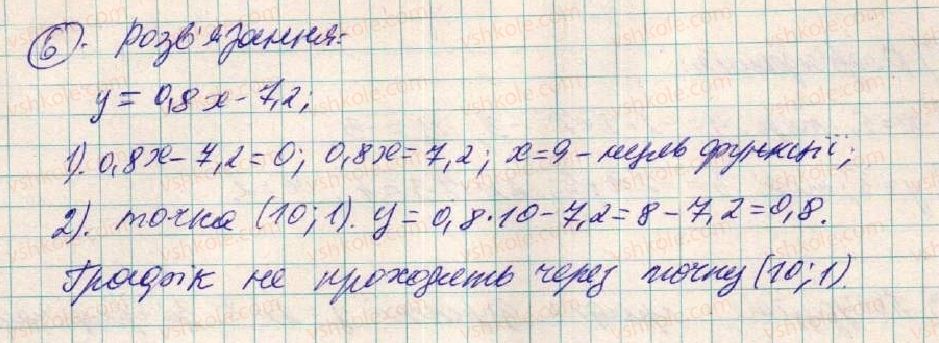 6). Розв'язання:
y = 0,8x - 7,2;
1). 0,8x - 7,2 = 0; 0,8x = 7,2; x = 9 - нуль функції;
2). точка (10; 1). y = 0,8·10 - 7,2 = 8 - 7,2 = 0,8.
Графік не проходить через точку (10; 1).